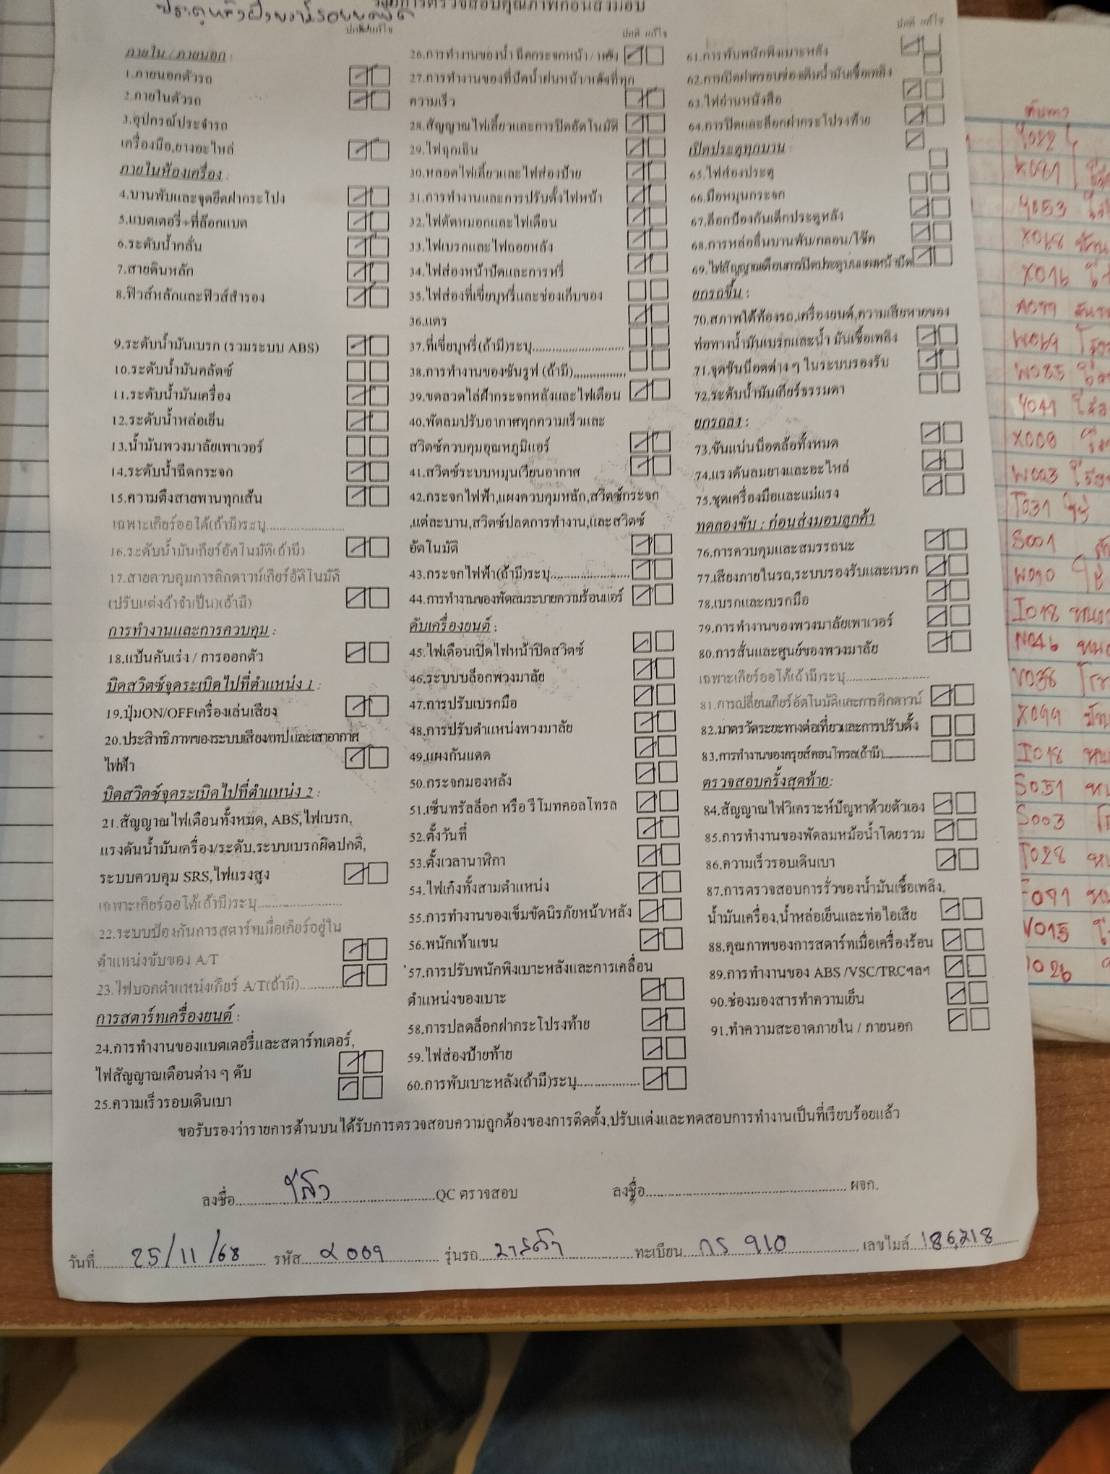 การตรวจสอบคุณภาพก่อนส่งมอบ
ภายใน / ภายนอก :
1.ภายนอกตัวรถ
2.ภายในตัวรถ
3.อุปกรณ์ประจำรถ
เครื่องมือ,ยางอะไหล่
ภายในห้องเครื่อง :
4.บานพับและจุดยึดฝากระโปง
5.แบตเตอรี่+ที่ล๊อกแบต
6.ระดับน้ำกลั่น
7.สายดินหลัก
8.ฟิวส์หลักและฟิวส์สำรอง
9.ระดับน้ำมันเบรก (รวมระบบ ABS)
10.ระดับน้ำมันคลัตซ์
11.ระดับน้ำมันเครื่อง
12.ระดับน้ำหล่อเย็น
13.น้ำมันพวงมาลัยเพาเวอร์
14.ระดับน้ำฉีดกระจก
15.ความตึงสายพานทุกเส้น
เฉพาะเกียร์ออโต้(ถ้ามี)ระบุ
16.ระดับน้ำมันเกียร์อัตโนมัติ(ถ้ามี)
17.สายควบคุมการคิกดาวน์เกียร์อัติโนมัติ
(ปรับแต่งถ้าจำเป็น)(ถ้ามี)
การทำงานและการควบคุม :
18.แป้นคันเร่ง / การออกตัว
บิดสวิตซ์จุดระเบิดไปที่ตำแหน่ง 1 :
19.ปุ่มON/OFFเครื่องเล่นเสียง
20.ประสิทธิภาพของระบบเสียงเทปและเสาอากาศ
ไฟฟ้า
บิดสวิตซ์จุดระเบิดไปที่ตำแหน่ง 2 :
21.สัญญาณไฟเตือนทั้งหมด, ABS,ไฟเบรก,
แรงดันน้ำมันเครื่อง/ระดับ,ระบบเบรกผิดปกติ,
ระบบควบคุม SRS,ไฟแรงสูง
เฉพาะเกียร์ออโต้(ถ้ามี)ระบุ
22.ระบบป้องกันการสตาร์ทเมื่อเกียร์อยู่ใน
ตำแหน่งขับของ A/T
23.ไฟบอกตำแหน่งเกียร์ A/T(ถ้ามี)
การสตาร์ทเครื่องยนต์ :
24.การทำงานของแบตเตอรี่และสตาร์ทเตอร์,
ไฟสัญญาณเตือนต่าง ๆ ดับ
25.ความเร็วรอบเดินเบา
ปกติ แก้ไข
26.การทำงานของน้ำฉีดกระจกหน้า / หลัง
27.การทำงานของที่ปัดน้ำฝนหน้า/หลังที่ทุก
ความเร็ว
28.สัญญาณไฟเลี้ยวและการปิดอัตโนมัติ
29.ไฟฉุกเฉิน
30.หลอดไฟเลี้ยวและไฟส่องป้าย
31.การทำงานและการปรับตั้งไฟหน้า
32.ไฟตัดหมอกและไฟเตือน
33.ไฟเบรกและไฟถอยหลัง
34.ไฟส่องหน้าปัดและการหรี่
35.ไฟส่องที่เขี่ยบุหรี่และช่องเก็บของ
36.แตร
37.ที่เขี่ยบุหรี่(ถ้ามี)ระบุ
38.การทำงานของซันรูฟ (ถ้ามี)
39.ขดลวดไล่ฝ้ากระจกหลังและไฟเตือน
40.พัดลมปรับอากาศทุกความเร็วและ
สวิตซ์ควบคุมอุณหภูมิแอร์
41.สวิตซ์ระบบหมุนเวียนอากาศ
42.กระจกไฟฟ้า,แผงควบคุมหลัก,สวิตซ์กระจก
,แต่ละบาน,สวิตซ์ปลดการทำงาน,และสวิตซ์
อัตโนมัติ
43.กระจกไฟฟ้า(ถ้ามี)ระบุ
44.การทำงานของพัดลมระบายความร้อนแอร์
ดับเครื่องยนต์ :
45.ไฟเตือนเปิดไฟหน้าปิดสวิตซ์
46.ระบบบล็อกพวงมาลัย
47.การปรับเบรกมือ
48.การปรับตำแหน่งพวงมาลัย
49.แผงกันแดด
50.กระจกมองหลัง
51.เซ็นทรัลล็อก หรือ รีโมทคอลโทรล
52.ตั้งวันที่
53.ตั้งเวลานาฬิกา
54.ไฟเก๋งทั้งสามตำแหน่ง
55.การทำงานของเข็มขัดนิรภัยหน้า/หลัง
56.พนักเท้าแขน
57.การปรับพนักพิงเบาะหลังและการเคลื่อน
ตำแหน่งของเบาะ
58.การปลดล็อกฝากระโปรงท้าย
59.ไฟส่องป้ายท้าย
60.การพับเบาะหลัง(ถ้ามี)ระบุ
ปกติ แก้ไข
61.การพับพนักพิงเบาะหลัง
62.การเปิดฝาครอบช่องเติมน้ำมันเชื้อเพลิง
63.ไฟอ่านหนังสือ
64.การปิดและล็อกฝากระโปรงท้าย
เปิดประตูทุกบาน :
65.ไฟส่องประตู
66.มือหมุนกระจก
67.ล็อกป้องกันเด็กประตูหลัง
68.การหล่อลื่นบานพับ/กลอน/โช๊ก
69.ไฟสัญญาณเตือนการปิดประตูบนแผงหน้าปัด
ยกรถขึ้น :
70.สภาพใต้ท้องรถ,เครื่องยนต์,ความเสียหายของ
ท่อทางน้ำมันเบรกและน้ำมันเชื้อเพลิง
71.จุดขันน็อตต่าง ๆ ในระบบรองรับ
72.ระดับน้ำมันเกียร์ธรรมดา
ยกรถลง :
73.ขันแน่นน็อตล้อทั้งหมด
74.แรงดันลมยางและอะไหล่
75.ชุดเครื่องมือและแม่แรง
ทดลองขับ : ก่อนส่งมอบลูกค้า
76.การควบคุมและสมรรถนะ
77.เสียงภายในรถ,ระบบรองรับและเบรก
78.เบรกและเบรกมือ
79.การทำงานของพวงมาลัยเพาเวอร์
80.การสั่นและศูนย์ของพวงมาลัย
เฉพาะเกียร์ออโต้(ถ้ามี)ระบุ
81.การเปลี่ยนเกียร์อัตโนมัติและการคิกดาวน์
82.มาตรวัดระยะทางต่อเที่ยวและการปรับตั้ง
83.การทำงานของครุยส์คอนโทรล(ถ้ามี)
ตรวจสอบครั้งสุดท้าย:
84.สัญญาณไฟวิเคราะห์ปัญหาด้วยตัวเอง
85.การทำงานของพัดลมหม้อน้ำโดยรวม
86.ความเร็วรอบเดินเบา
87.การตรวจสอบการรั่วของน้ำมันเชื้อเพลิง,
น้ำมันเครื่อง,น้ำหล่อเย็นและท่อไอเสีย
88.คุณภาพของการสตาร์ทเมื่อเครื่องร้อน
89.การทำงานของ ABS /VSC/TRCฯลฯ
90.ช่องมองสารทำความเย็น
91.ทำความสะอาดภายใน / ภายนอก
ขอรับรองว่ารายการด้านบนได้รับการตรวจสอบความถูกต้องของการติดตั้ง,ปรับแต่งและทดสอบการทำงานเป็นที่เรียบร้อยแล้ว
ลงชื่อ QC ตรวจสอบ ลงชื่อ ผจก.
วันที่ 25/11/68 รหัส 009 รุ่นรถ มาสด้า ทะเบียน กร 910 เลขไมล์ 186,218
X016
W083
Y041
X008
W003
T031
S001
W090
I018
N046
V038
X099
I018
S051
S003
T028
V015